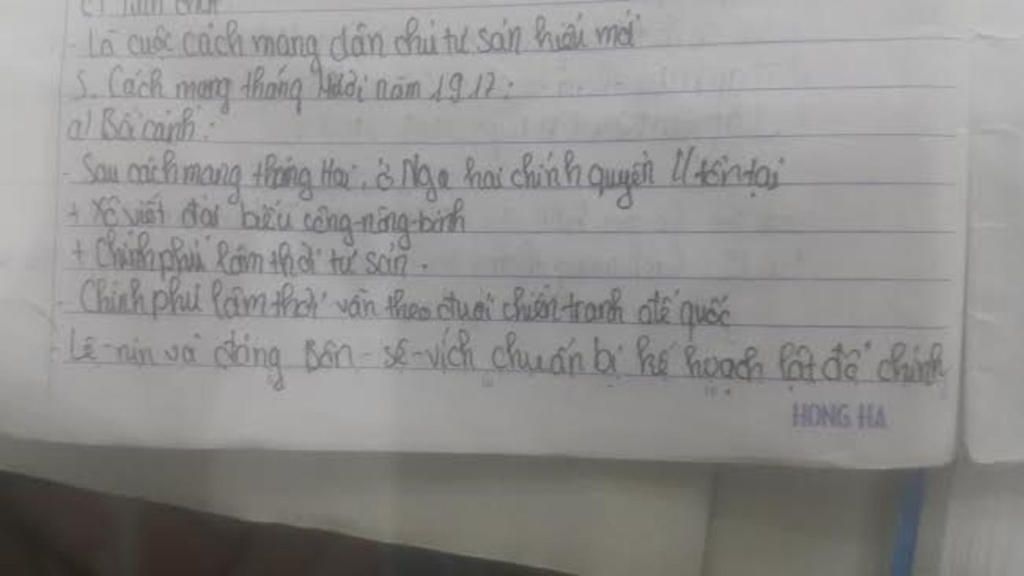 c) Tính chất
- Là cuộc cách mạng dân chủ tư sản kiểu mới
5. Cách mạng tháng Mười năm 1917:
a) Bối cảnh:
- Sau cách mạng tháng Hai, ở Nga hai chính quyền // tồn tại
+ Xô viết đại biểu công-nông-binh
+ Chính phủ lâm thời tư sản.
- Chính phủ lâm thời vẫn theo đuổi chiến tranh đế quốc
- Lê-nin và đảng Bôn-sê-vích chuẩn bị kế hoạch lật đổ chính
HONG HA